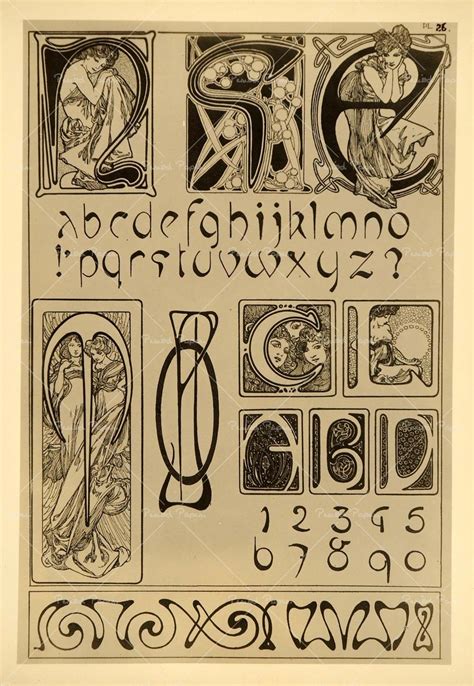 PL. 26.
S E
abcdefghijklmno
!pqrstuvwxyz?
M C L
A B D
1 2 3 4 5
6 7 8 9 0
Period Paper